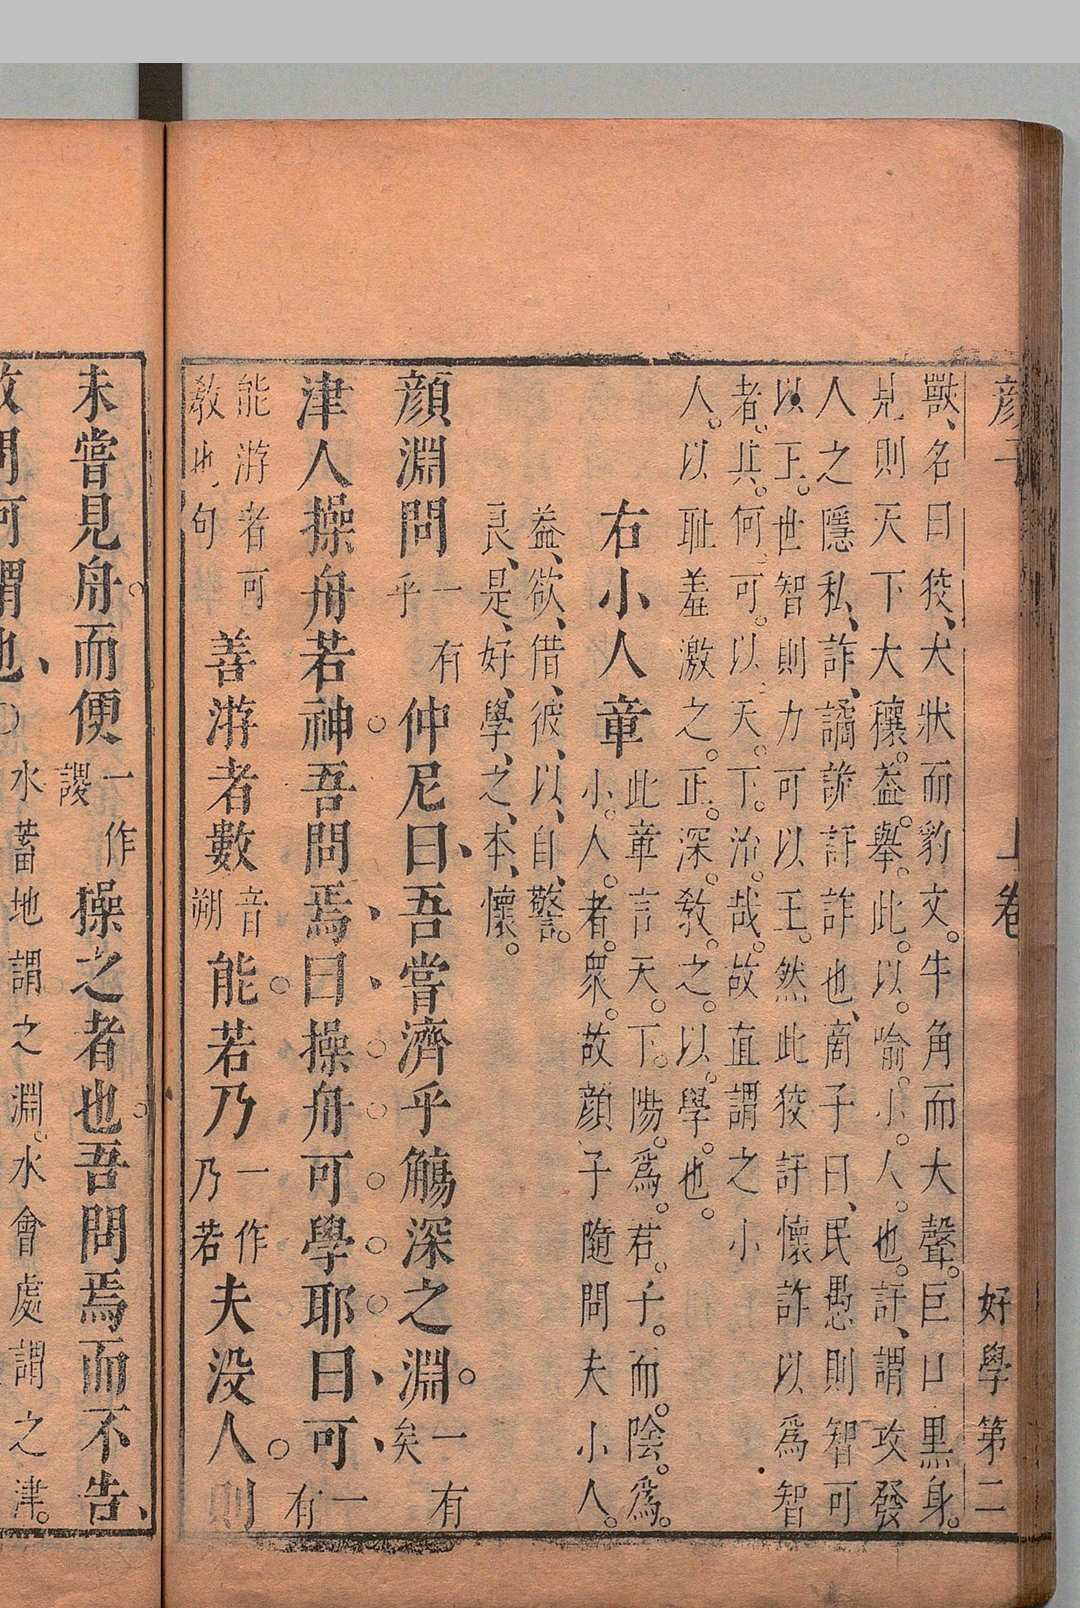 顏子 上卷 好學第二
獸、名曰狡、犬狀而豹文。牛角而大聲。巨口黑身。
見則天下大穰。蓋舉。此。以。喻。小。人。也。訐、謂攻發
人之隱私、詐、譎詭訐詐也、商子曰、民愚則智可
以王。世智則力可以王。然此狡訐懷詐以爲智
者。其。何。可。以。天。下。治。哉。故直謂之小
人。以耻羞激之。正。深。敎。之。以。學。也。
右小人章
此章言天。下。陽。爲。君。子。而。陰。爲。
小。人。者。衆。故顔子隨問夫小人。
益、欲、借、彼、以、自、警。
艮、是、好、學、之、本、懷。
顏淵問一有乎仲尼曰、吾嘗濟乎觴深之淵。一有矣
津人操舟若神。吾問焉、曰、操舟可學耶。曰、可、一有
能游者可敎也句善游者數音朔能。若乃一作乃若夫没人。則
未嘗見舟。而便一作謖操之者也。吾問焉而不告、
敢問何謂也、水蓄地謂之淵。水會處謂之津。